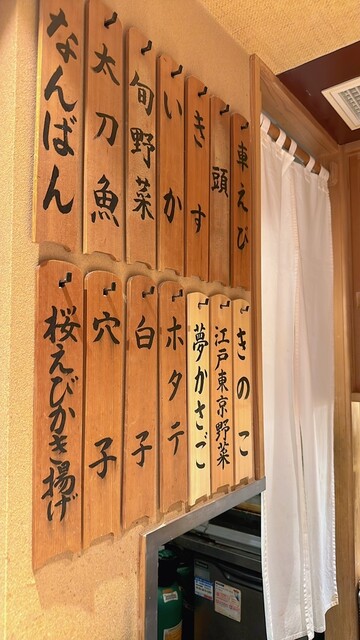 車えび
頭
きす
いか
旬野菜
太刀魚
なんばん
きのこ
江戸東京野菜
夢かさご
ホタテ
白子
穴子
桜えびかき揚げ